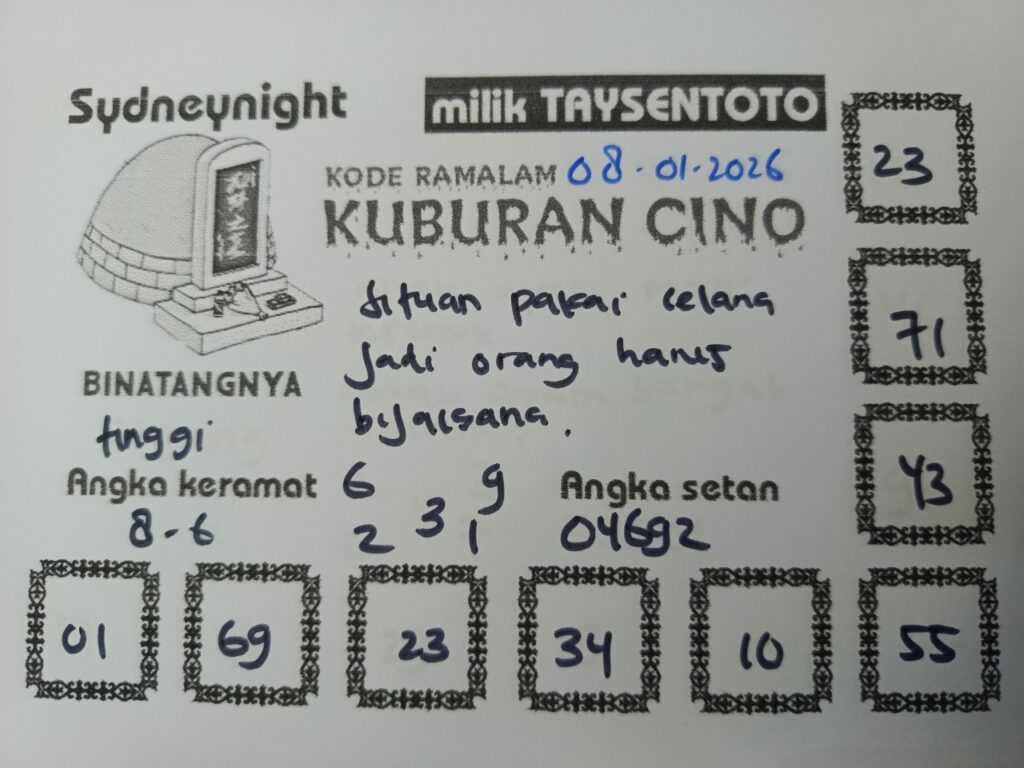 Sydneynight
milik TAYSENTOTO
KODE RAMALAM 08-01-2026
KUBURAN CINO
Situan pakai celana
jadi orang harus
bijaksana.
BINATANGNYA
tinggi
Angka keramat
8-6
6 9
3
2 1
Angka setan
04692
23
71
43
01 69 23 34 10 55